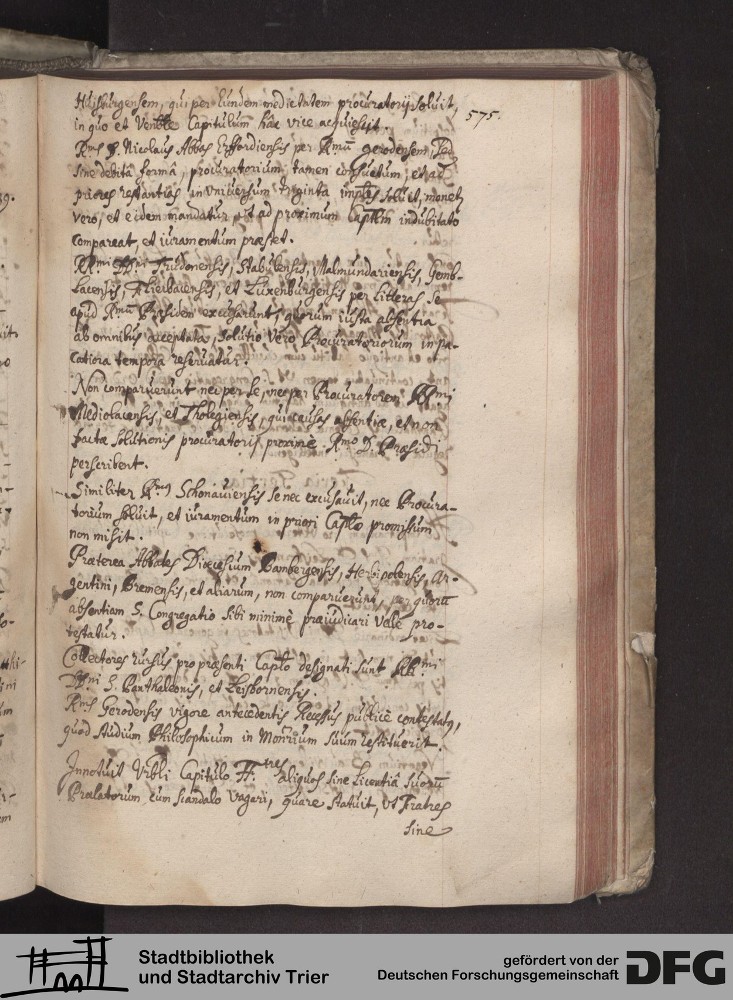 575.
Huisburgensem, qui per eundem medietatem procuratorij soluit,
in quo et Venble Capitulum hâc vice acquieuit.
Rms D. Nicolaus Abbas Erffordiensis per Rmũ Gerodensem, sed
sine debitâ formâ, procuratorium tamen consuetum, et ad
priores restantias in universum triginta soluit,
vero, et eidem mandatur ut ad proximum Captlm indubitatò
compareat, et iuramentum praestet.
RRmi DDni Trudonensis, Stabulensis, Malmundariensis, Gemb-
lacensis, et Luxenburgensis per litteras se
apud Rmũ Praesidem excusarunt, quorum iusta absentia
ab omnibus acceptata, solutio verò Procuratoriorum in pa-
catiora tempora reservatur.
Non comparuerunt nec per se, nec per Procuratorem RRmi
Mediolacensis, et Tholegiensis, qui causas absentiae, et non
factae solutionis procuratorij proximè Rmo D. Praesidi
perscribent.
Similiter Rms Schonauiensis se nec excusauit, nec Procura-
torium soluit, et iuramentum in priori Captlo promissum
non misit.
Praeterea Abbates Dioecesium Bambergensis, Herbipolensis, Ar-
gentini, Bremensis, et aliarum, non comparuerunt, per quorũ
absentiam S. Congregatio sibi minimè praeiudicari velle pro-
testatur.
Collectores rursus pro praesenti Captlo designati sunt RRmi
DDni S. Panthaleonis, et Leisbornensis.
Rms Gerodensis vigore antecedentis Recessus publicè contestatq,
quod studium Philosophicum in Monrium suum restituerit.
Innotuit Vrbli Capitulo FFtres aliquos sine licentiâ suorũ
Praelatorum cum scandalo vagari, quare statuit, ut Fratres
sine
Stadtbibliothek
und Stadtarchiv Trier
gefördert von der
Deutschen Forschungsgemeinschaft
DFG